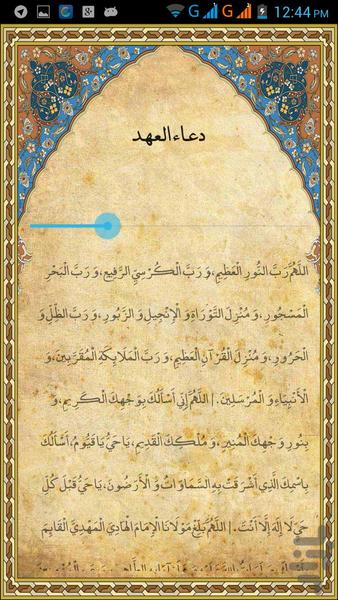 12:44 PM
دعاء العهد
اللهُمَّ رَبَّ النُّورِ الْعَظِيمِ، وَ رَبَّ الْكُرْسِيِّ الرَّفِيعِ، وَ رَبَّ الْبَحْرِ
الْمَسْجُورِ، وَ مُنْزِلَ التَّوْرَاةِ وَ الْإِنْجِيلِ وَ الزَّبُورِ، وَ رَبَّ الظِّلِّ وَ
الْحَرُورِ، وَ مُنْزِلَ الْقُرْآنِ الْعَظِيمِ، وَ رَبَّ الْمَلَائِكَةِ الْمُقَرَّبِينَ، وَ
الْأَنْبِيَاءِ وَ الْمُرْسَلِينَ . | اللهُمَّ إِنِّي أَسْأَلُكَ بِوَجْهِكَ الْكَرِيمِ، وَ
بِنُورِ وَجْهِكَ الْمُنِيرِ، وَ مُلْكِكَ الْقَدِيمِ، يَا حَيُّ يَا قَيُّومُ، أَسْأَلُكَ
بِاسْمِكَ الَّذِي أَشْرَقَتْ بِهِ السَّمَاوَاتُ وَ الْأَرَضُونَ، يَا حَيُّ قَبْلَ كُلِّ
حَيٍّ لَا إِلَهَ إِلَّا أَنْتَ . | اللهُمَّ بَلِّغْ مَوْلَانَا الْإِمَامَ الْهَادِيَ الْمَهْدِيَّ الْقَائِمَ
بازار